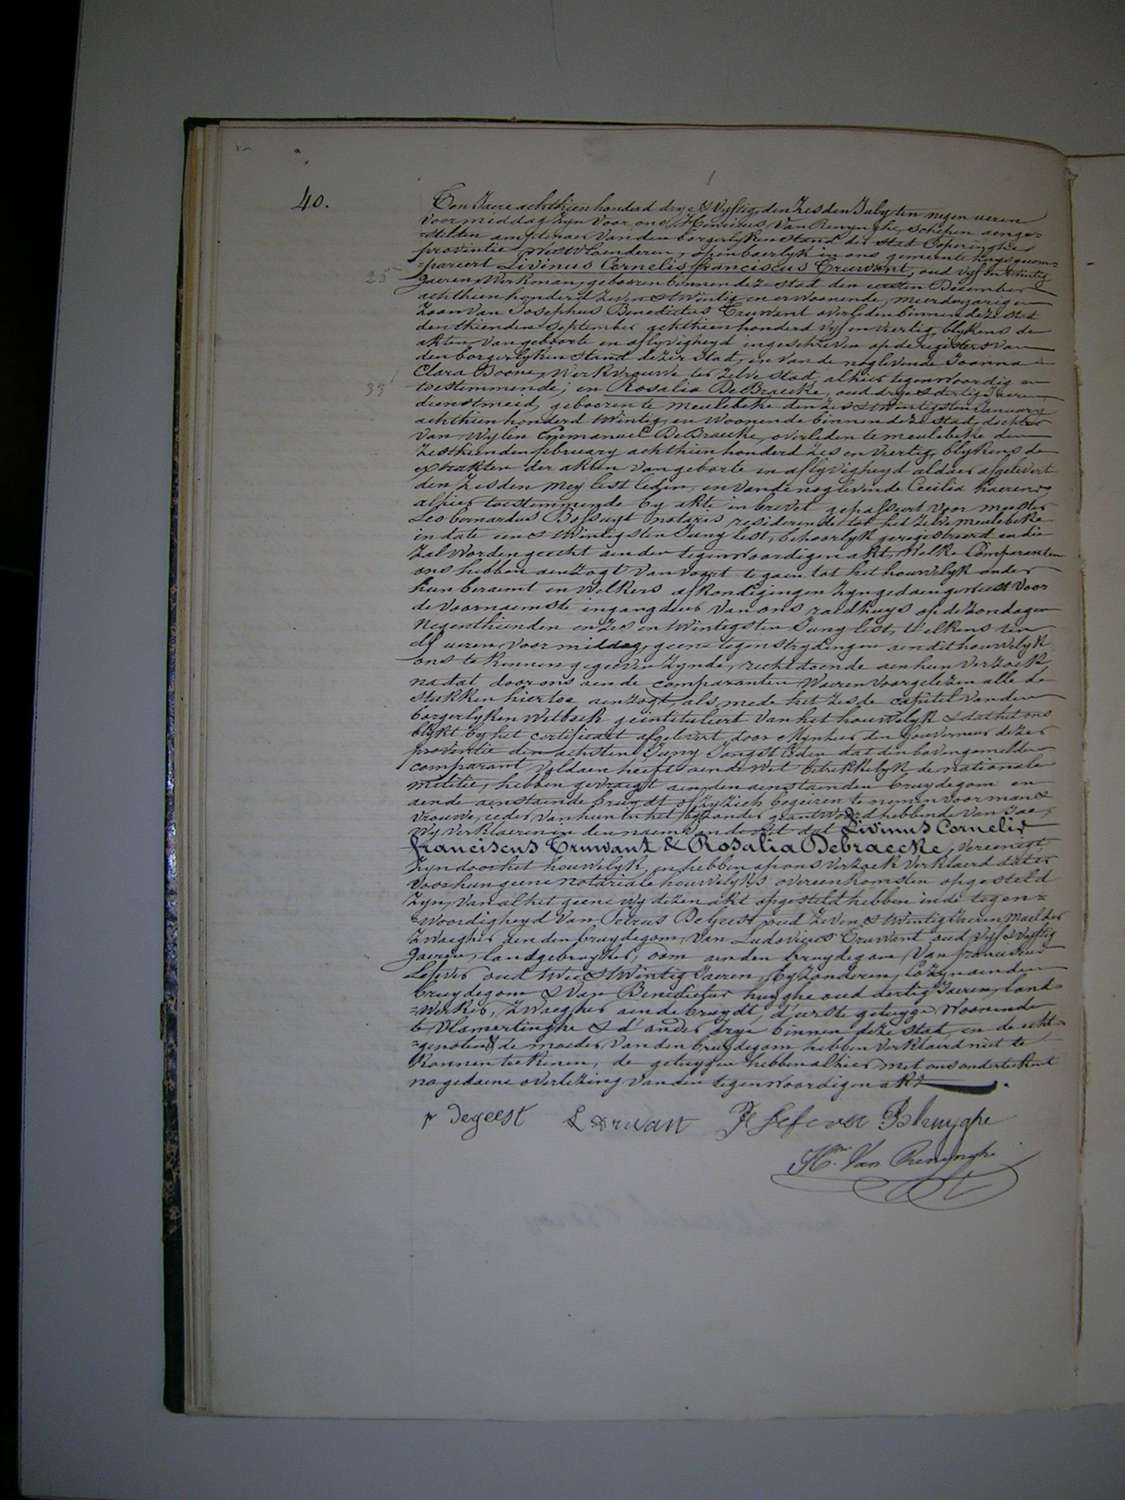 40.
Ten Jaere achthien honderd drye & vyftig, den zesden July ten negen ueren
voormiddag zyn voor ons, Henricus Van Renynghe, schepen aenge-
=stelden amptenaer van den borgerlyken stand der stad Poperinghe
provintie Westvlaenderen, openbaerlyk in ons gemeente huys gecom-
25 =pareert Livinus Cornelis franciscus Truwant, oud vyf en twintig
Jaeren, Werkman, geboren binnen deze stad den eersten December
achthien honderd zeven & twintig en er woonende, meerderjarigen
zoon van Josephus Benedictus Truwant overleden binnen deze stad
den thienden September achthien honderd vyf en veertig, blykens de
akten van geboorte en aflyvigheyd ingeschreven op de registers van
den borgerlyken stand dezer stad, en van de noglevende Joanna
Clara Boone, Werkvrouwe ter zelve stad, alhier tegenwoordig en
33 toestemmende; en Rosalia De Braecke, oud drye & dertig jaeren
dienstmeid, geboren te Meulebeke den zes & twintigsten January
achthien honderd twintig, en woonende binnen deze stad, dochter
van wylen Emmanuel De Braecke, overleden te meulebeke den
zesthienden february achthien honderd zes en veertig, blykens de
extrakten der akten van geborte en aflyvigheyd aldaer afgelevert
den zesden mey lest leden, en van de noglevende Cecilia
alhier toestemmende by akte in brevet gepasseert voor meester
Leo bernardus Bossuyt notaris residerende tot het zelve meulebeke
in date een & twintigsten Juny lest, behoorlyk geregistreerd en die
zal worden gehecht aen den tegenwoordigen akt, Welke Comparanten
ons hebben aenzogt van voort te gaen tot het houwelyk onder
hun beraemt en welkers afkondigingen zyn gedaen geweest voor
de voornaemste ingangdeur van ons raedhuys op de zondagen
negenthienden en zes en twintigsten Juny lest, telkens ten
elf ueren voormiddag, geene tegenstrydingen aen dit houwelyk
ons te kennen gegeven zynde, recht doende aen hun verzoek
na dat door ons aen de comparanten waeren voorgelezen alle de
stukken hiertoe aenzogt, als mede het zesde capittel van den
borgerlyken Wetboek geintituleert van het houwelyk & dat het ons
blykt by het certificaet afgelevert door Mynheer den Gouverneur dezer
provintie den achtsten Juny Jongst leden dat den bovengemelden
comparant voldaen heeft aen de wet betrekkelyk de nationale
militie, hebben gevraegt aen den aenstaenden bruydegom en
aen de aenstaende bruydt of zy zich begeiren te nemen voor man &
vrouwe, ieder van hun in het byzonder geantwoord hebbende van Jae,
Wy verklaeren in den naem van de wet dat Livinus Cornelis
franciscus Truwant & Rosalia Debraecke, vereenigt
zyn door het houwelyk, en hebben op ons verzoek verklaerd dat er
voor hun geene notariale houwelyks overeenkomsten opgesteld
zyn, van al het geene wy dezen akt opgesteld hebben in de tegen-
=woordigheyd van Petrus De Geest oud zeven & twintig Jaeren
zwaegher aen den bruydegom, van Ludovicus Truwant oud vyf & vyftig
Jaeren, landgebruyker, oom aen den bruydegom, van franciscus
Lefever oud twee & twintig Jaeren, byzonderen, cozyn aen den
bruydegom & van Benedictus huyghe oud dertig Jaeren, land-
=werker, zwaegher aen de bruydt, d'eerste getuyge woonende
te Vlamertinghe & d' ander drye binnen deze stad, en de echt-
=genoten & de moeder van den bruydegom hebben verklaerd niet te
konnen teekenen, de getuygen hebben alhier met ons onderteekent
na gedaene overlezing van den tegenwoordigen akt
p degeest L Truwant Lefever B huyghe
Hri Van Renynghe